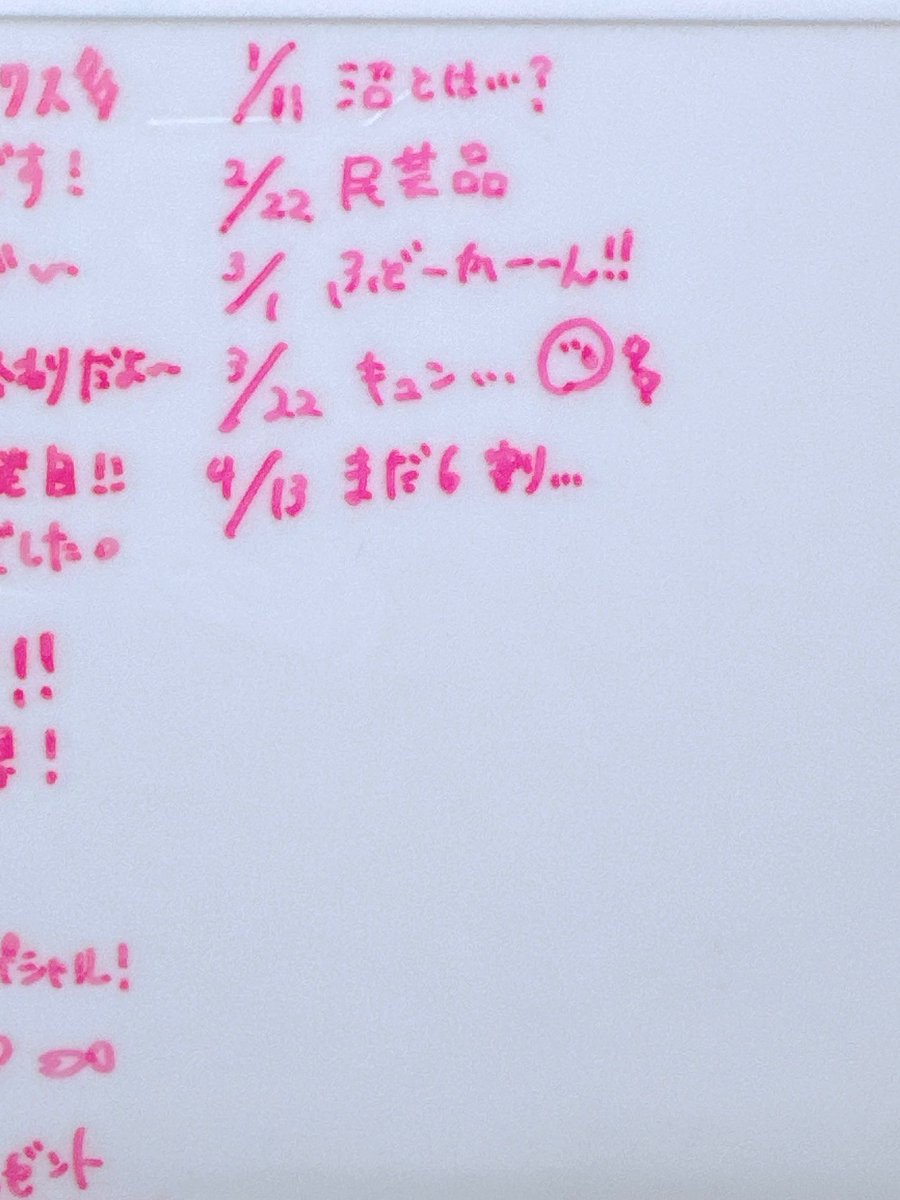 クス
です!
1/11 沼とは…?
2/22 民芸品
3/1 ふどーかーーん!!
3/22 キュン…
4/13 まだ6割…
おわりだよ~
曜日!!
でした。
!!
!
シャル!
ゼント